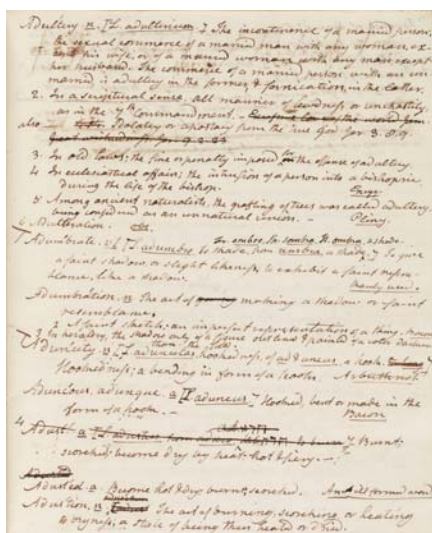 Adultery n. [L. adulterium.] The incontinence of a married person;
the sexual commerce of a married man with any woman, ex-
cept his wife, or of a married woman with any man except
her husband. The commerce of a married person with an un-
married is adultery in the former, & fornication in the latter.
2. In a scriptural sense, all manner of lewdness or unchastity,
as in the 7th Commandment.
also Idolatry or apostasy from the true God. Jer 3. 8, 9.
3. In old laws, the fine or penalty imposed for the offense of adultery.
4 In ecclesiastical affairs, the intrusion of a person into a bishopric
during the life of the bishop.
5 Among ancient naturalists, the grafting of trees was called adultery,
being considered as an unnatural union. - Pliny.
6 Adulteration.
Fr. ombre, Sp. sombra, It. ombra, a shade.
Adumbrate. v.t. [L. adumbro to shade, from umbra, a shade.] To give
a faint shadow, or slight likeness, to exhibit a faint resem-
blance, like a shadow.
Adumbration. n. The act of making a shadow or faint
resemblance.
2 A faint sketch; an imperfect representation of a thing.
3 In heraldry, the shadow only of a figure outlined & painted of a color darker
than the field.
Aduncity n. [L. aduncitas, hookedness, of ad & uncus, a hook.
Hookedness; a bending in form of a hook. Arbuthnot.
Aduncous, adunque. a [L. aduncus] Hooked, bent or made in the
form of a hook. - Bacon
Adust a [L. adustus, to burn] Burnt;
scorched; become dry by heat; hot & fiery.
Adusted a. Become hot & dry; burnt; scorched. An ill formed word
Adustion, n. The act of burning, scorching or heating
to dryness; a state of being thus heated or dried.